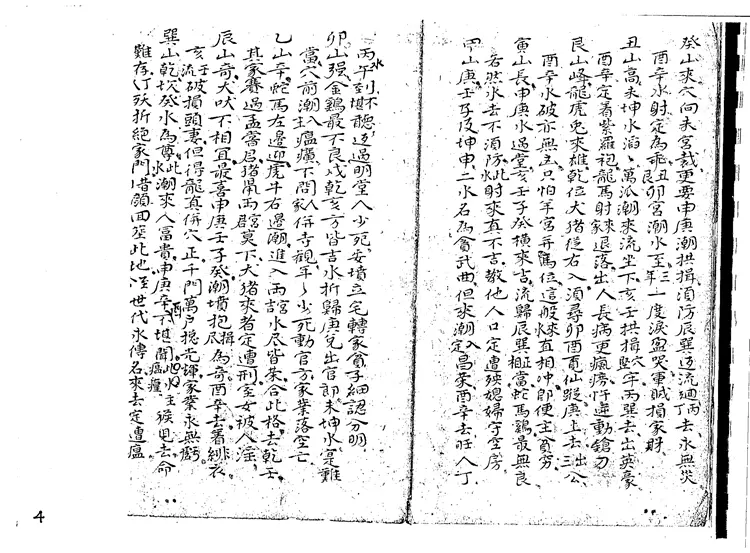 癸山來穴向未宮裁更要申庚潮拱揖須防辰巽邊流迴丙丁去永無災
酉辛水射定為乖丑艮卯宮潮水至三年一度淚盈哭軍賊損家財
丑山高未坤水滔萬派潮來流坐下亥壬拱揖堅牢丙巽去出英豪
酉辛定著紫羅袍龍馬射來家退落出人長病更瘋癆忤逆動鎗刀
艮山峰龍虎兎來雄乾位犬猪從右入須尋卯酉電仙蹤庚上去出三公
酉辛水破亦無主只怕羊宮并馬位這般來水直相沖即便主貧窮
寅山長申庚水過堂亥壬子癸橫來吉流歸辰巽相當蛇馬鷄最無良
若然水去不消防此水射來真不吉教他人口定遭殃媳婦守空房
甲山庚壬子及坤申二水名為貪武曲但來潮入定昌家酉辛去旺人丁
丙午水到不堪聽過明堂人少死安墳立宅轉家貧子細認分明
卯山强金鷄最不良戌乾亥方皆吉水折歸庚兌出官郎未坤水是難
當穴前潮入主瘟癀不問家人併寺觀年年少死動官方家業落空亡
乙山辛蛇馬左邊迎虎牛右邊潮進入兩宮水尽皆朱合此格去乾壬
其家賽過孟嘗君猪鼠兩宮莫下犬猪來者定遭刑室女被人淫
辰山奇犬吠不相宜最喜申庚壬子癸潮墳抱揖尽為奇酉辛去著緋衣
亥壬流破損頭妻但得龍真併穴正千門萬戶摠光輝家業永無虧
巽山乾坎癸水為尊此水潮來人富貴申庚辛酉不堪聞瘟瘟此水主猴鬼去命
難存丁殀折絕家門昔顏回塟此地至世代永傳名來去定遭瘟
4